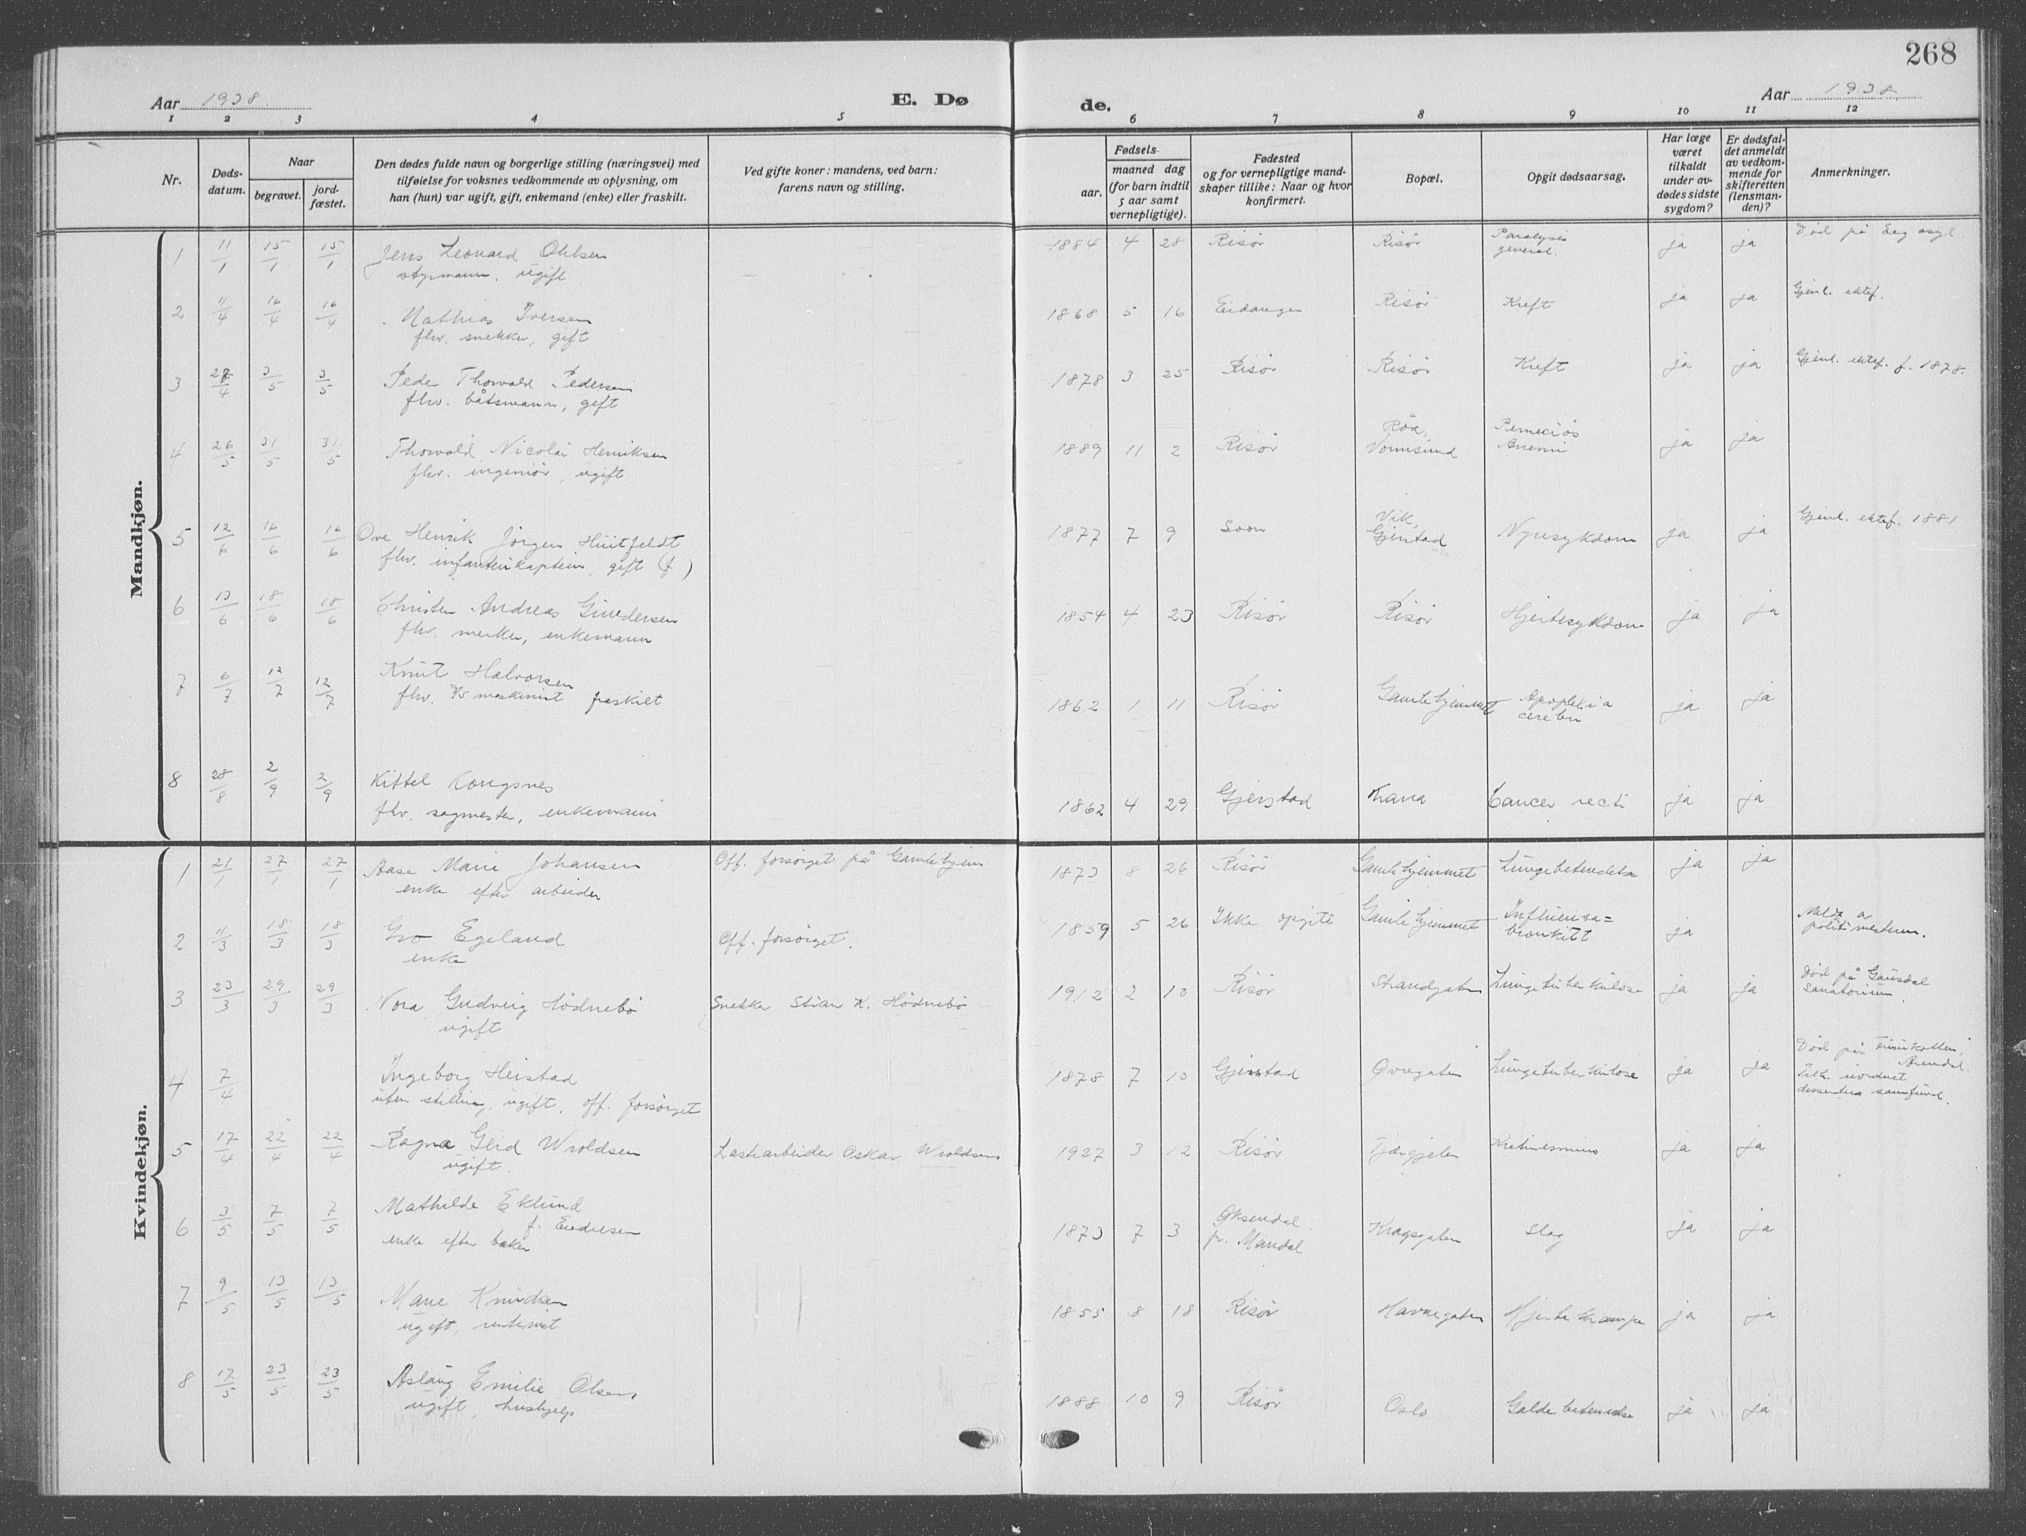 268
Aar 1938.
E. Dø
de.
Aar 1938.
1 2 3 4 5 6 7 8 9 10 11 12
Nr.
Døds-
datum.
Naar
begravet.
jord-
fæstet.
Den dødes fulde navn og borgerlige stilling (næringsvei) med
tilføielse for voksnes vedkommende av oplysning, om
han (hun) var ugift, gift, enkemand (enke) eller fraskilt.
Ved gifte koner: mandens, ved barn:
farens navn og stilling.
Fødsels-
aar.
maaned dag
(for barn indtil
5 aar samt
vernepligtige).
Fødested
og for vernepligtige mand-
skaper tillike: Naar og hvor
konfirmert.
Bopæl.
Opgit dødsaarsag.
Har læge
været
tilkaldt
under av-
dødes sidste
sygdom?
Er dødsfal-
det anmeldt
av vedkom-
mende for
skifteretten
(lensman-
den)?
Anmerkninger.
Mandkjøn.
1 11/1 15/1 15/1 Jens Leonard Ohlsen 1884 4 28 Risør Risør Paralysis ja ja Død på Eeg asyl.
styrmann, ugift general.
2 11/4 16/4 16/4 Mathias Iversen 1868 5 16 Eidanger Risør Kreft ja ja Gjenl. ektef.
fhv. snekker, gift
3 27/4 3/5 3/5 Peder Thorvald Pedersen 1878 3 25 Risør Risør Kreft ja ja Gjenl. ektef. f. 1878.
fhv. båtsmann, gift
4 26/5 31/5 31/5 Thorvald Nicolai Henriksen 1889 11 2 Risør Röa, Perneciös ja ja
fhv. ingeniør, ugift Vormsund Anemi
5 12/6 16/6 16/6 Ove Henrik Jörgen Huitfeldt 1877 7 9 Soon Vik, Nyresykdom ja ja Gjenl. ektef. 1881
fhv. infanterikaptein, gift (f) Gjerstad
6 13/6 18/6 18/6 Christen Andreas Gundersen 1854 4 23 Risør Risør Hjertesykdom ja ja
fhv. merker, enkemann
7 6/7 12/7 12/7 Knut Halvorsen 1862 1 11 Risør Gamlehjemmet Apoplexia ja ja
fhv. maskinist fraskilt cerebri
8 28/8 2/9 2/9 Kittel Kongsnes 1862 4 29 Gjerstad Krana Cancer recti ja ja
fhv. sagmester, enkemann
Kvindekjøn.
1 21/1 27/1 27/1 Aase Marie Johansen Off. forsørget på Gamlehjem 1873 8 26 Risør Gamlehjemmet Lungebetendelse ja ja
enke efter arbeider
2 11/3 18/3 18/3 Gro Egeland Off. forsørget. 1859 5 26 Ikke opgitt Gamlehjemmet Influensa= ja Meldt av
enke bronkitt politimesteren.
3 23/3 29/3 29/3 Nora Gudveig Hødnebö Snekker Stian K. Hødnebö 1912 2 10 Risør Strandgaten Lungetuberkulose ja ja Död på Gausdal
ugift sanatorium.
4 7/4 Ingeborg Heistad 1878 7 10 Gjerstad Øvregaten Lungetuberkulose ja ja Død på Furukollen,
uten stilling, ugift, off. forsørget Arendal.
Tilh. uordnet
dissenter samfund.
5 17/4 22/4 22/4 Ragna Gerd Wroldsen Lastearbeider Oskar Wroldsen 1927 3 12 Risør Tjærgjelen Kretinismus ja ja
ugift.
6 3/5 7/5 7/5 Mathilde Eklund 1873 7 3 Øksendal Kragsgaten Slag ja ja
f. Endresen pr. Mandal
enke efter baker
7 9/5 13/5 13/5 Marie Knudsen 1855 8 18 Risør Havnegaten Hjertekrampe ja ja
ugift, rentenist
8 17/5 23/5 23/5 Aslaug Emilie Olsen 1888 10 9 Risør Oslo Galdebetendelse ja ja
ugift, hushjelp